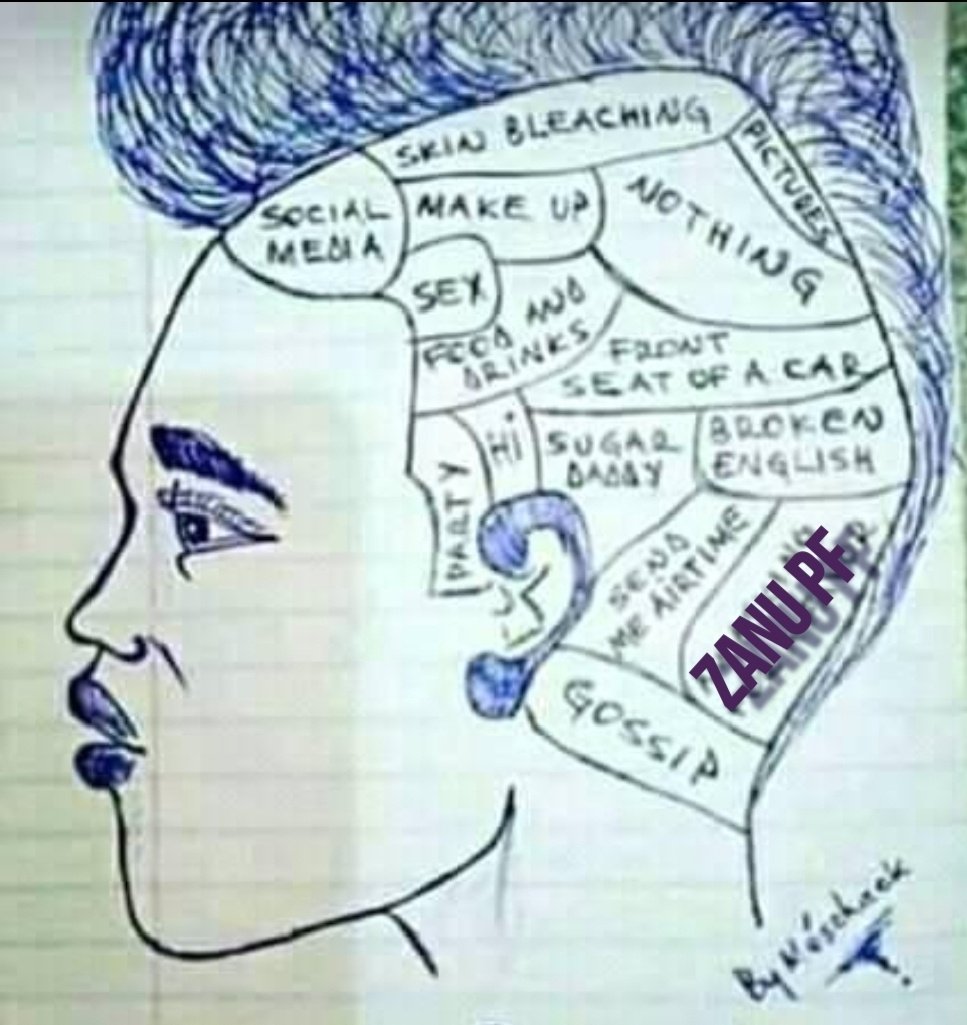 SKIN BLEACHING
PICTURES
SOCIAL
MEDIA
MAKE UP
NOTHING
SEX
FOOD AND
DRINKS
FRONT
SEAT OF A CAR
PARTY
Hi
SUGAR
DADDY
BROKEN
ENGLISH
SEND
ME AIRTIME
ZANU PF
GOSSIP